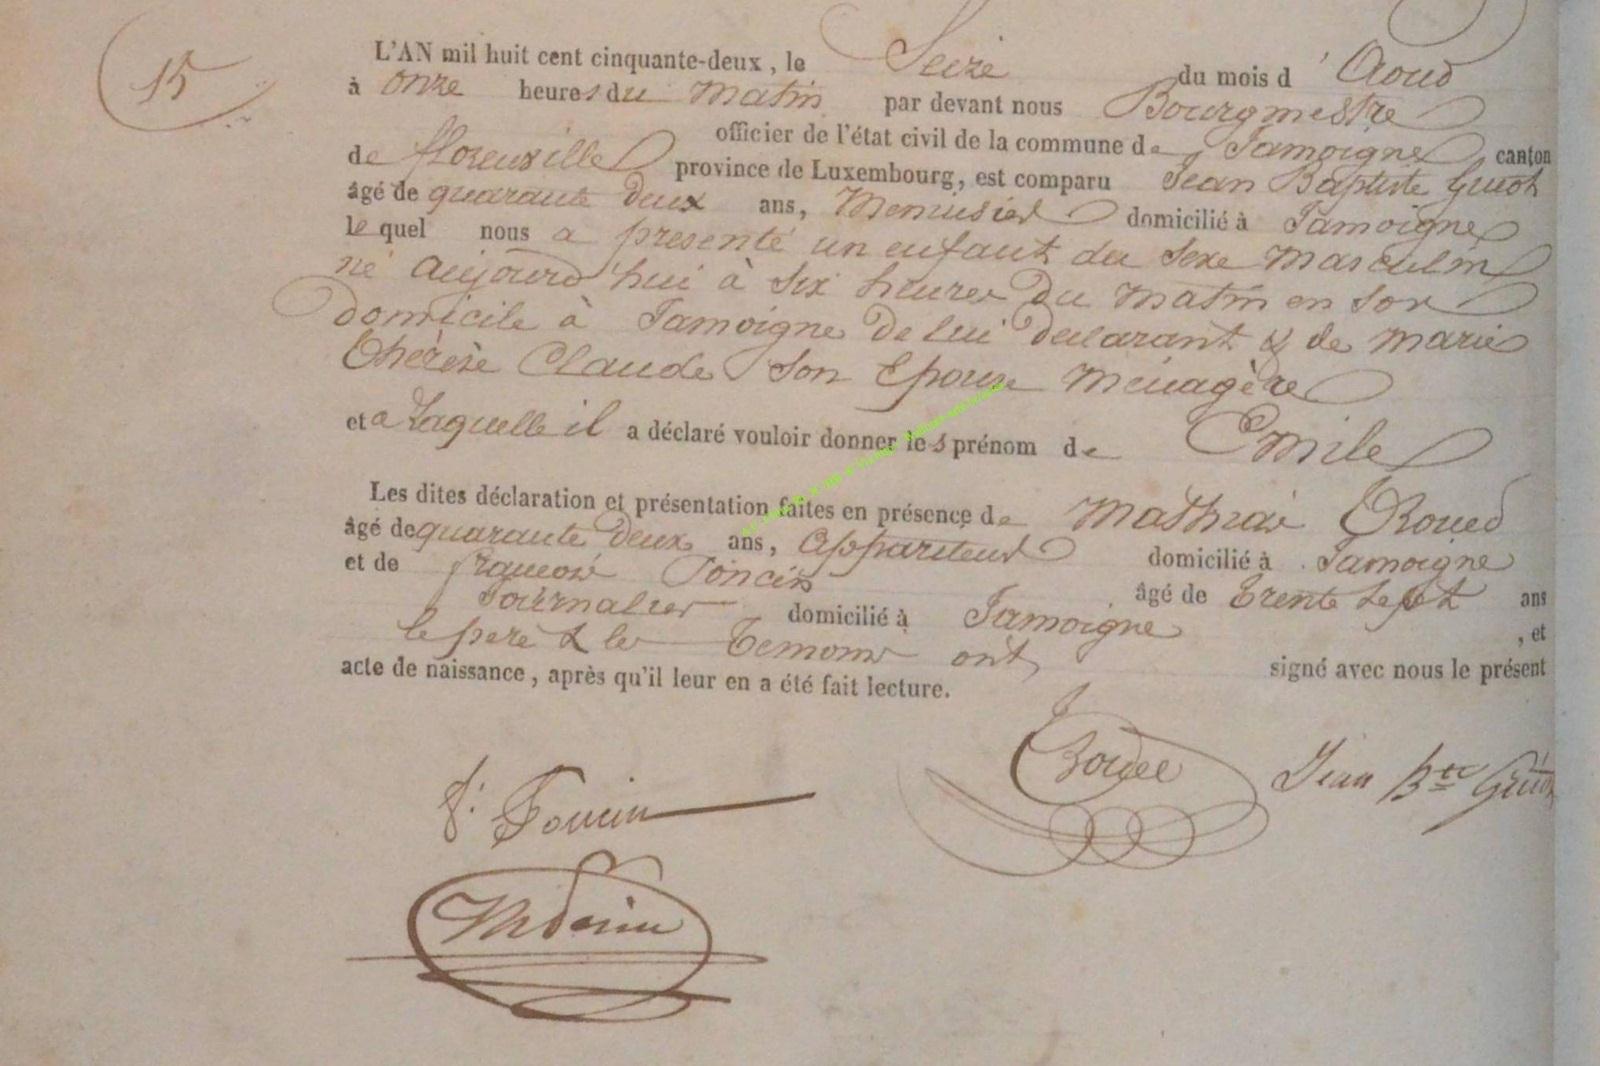 15
L'AN mil huit cent cinquante-deux, le Seize du mois d'Aoud
à onze heures du matin par devant nous Bourgmestre
officier de l'état civil de la commune de Jamoigne canton
de florenville province de Luxembourg, est comparu Jean Baptiste Guiot
âgé de quarante deux ans, Menuisier domicilié à Jamoigne
lequel nous a presenté un enfant du sexe masculin
né aujourd'hui à six heures du matin en son
domicile à Jamoigne de lui declarant & de marie
thérèse Claude son Epouse menagère
et a Laquelle il a déclaré vouloir donner les prénom de Emile
Les dites déclaration et présentation faites en présence de Mathias
âgé de quarante deux ans, appariteur domicilié à Jamoigne
et de françois Poncin âgé de trente sept ans
Journalier domicilié à Jamoigne , et
le pere & les temoins ont signé avec nous le présent
acte de naissance, après qu'il leur en a été fait lecture.
Jean Bte Guiot
f. Poncin